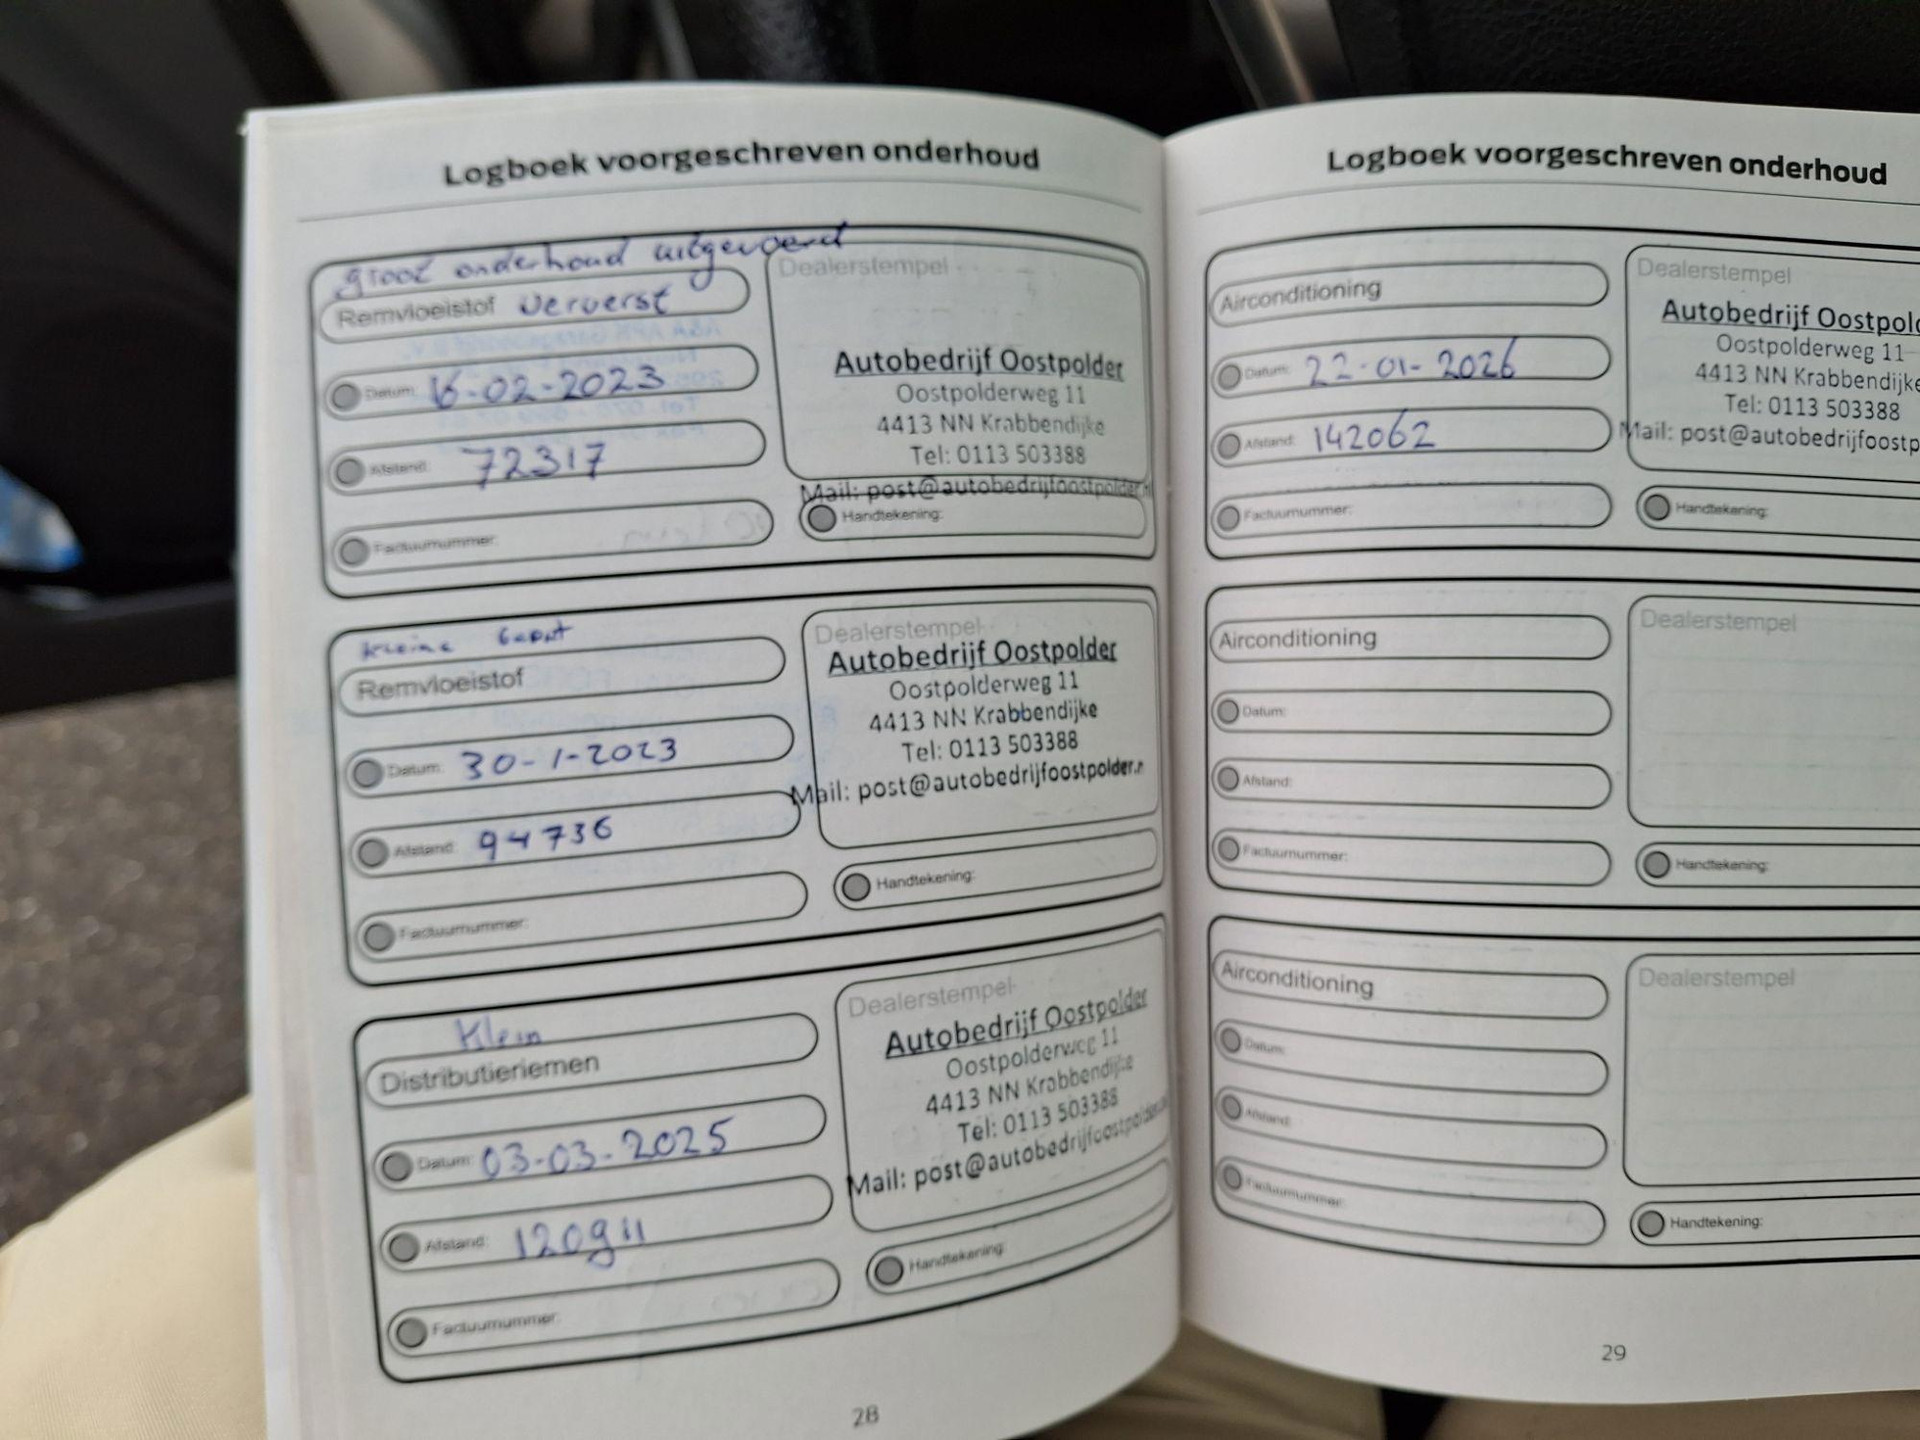 Logboek voorgeschreven onderhoud
groot onderhoud uitgevoerd
Remvloeistof ververst
Datum: 16-02-2023
Afstand: 72317
Factuurnummer:
Dealerstempel
Autobedrijf Oostpolder
Oostpolderweg 11
4413 NN Krabbendijke
Tel: 0113 503388
Mail: post@autobedrijfoostpolder.n
Handtekening:
kleine
Remvloeistof
Datum: 30-1-2023
Afstand: 94736
Factuurnummer:
Dealerstempel
Autobedrijf Oostpolder
Oostpolderweg 11
4413 NN Krabbendijke
Tel: 0113 503388
Mail: post@autobedrijfoostpolder.n
Handtekening:
Klein
Distributieriemen
Datum: 03-03-2025
Afstand: 120911
Factuurnummer:
Dealerstempel
Autobedrijf Oostpolder
Oostpolderweg 11
4413 NN Krabbendijke
Tel: 0113 503388
Mail: post@autobedrijfoostpolder
Handtekening:
28
Logboek voorgeschreven onderhoud
Airconditioning
Datum: 22-01-2026
Afstand: 142062
Factuurnummer:
Dealerstempel
Autobedrijf Oostpol
Oostpolderweg 11
4413 NN Krabbendijke
Tel: 0113 503388
Mail: post@autobedrijfoostp
Handtekening:
Airconditioning
Datum:
Afstand:
Factuurnummer:
Dealerstempel
Handtekening:
Airconditioning
Datum:
Afstand:
Factuurnummer:
Dealerstempel
Handtekening:
29